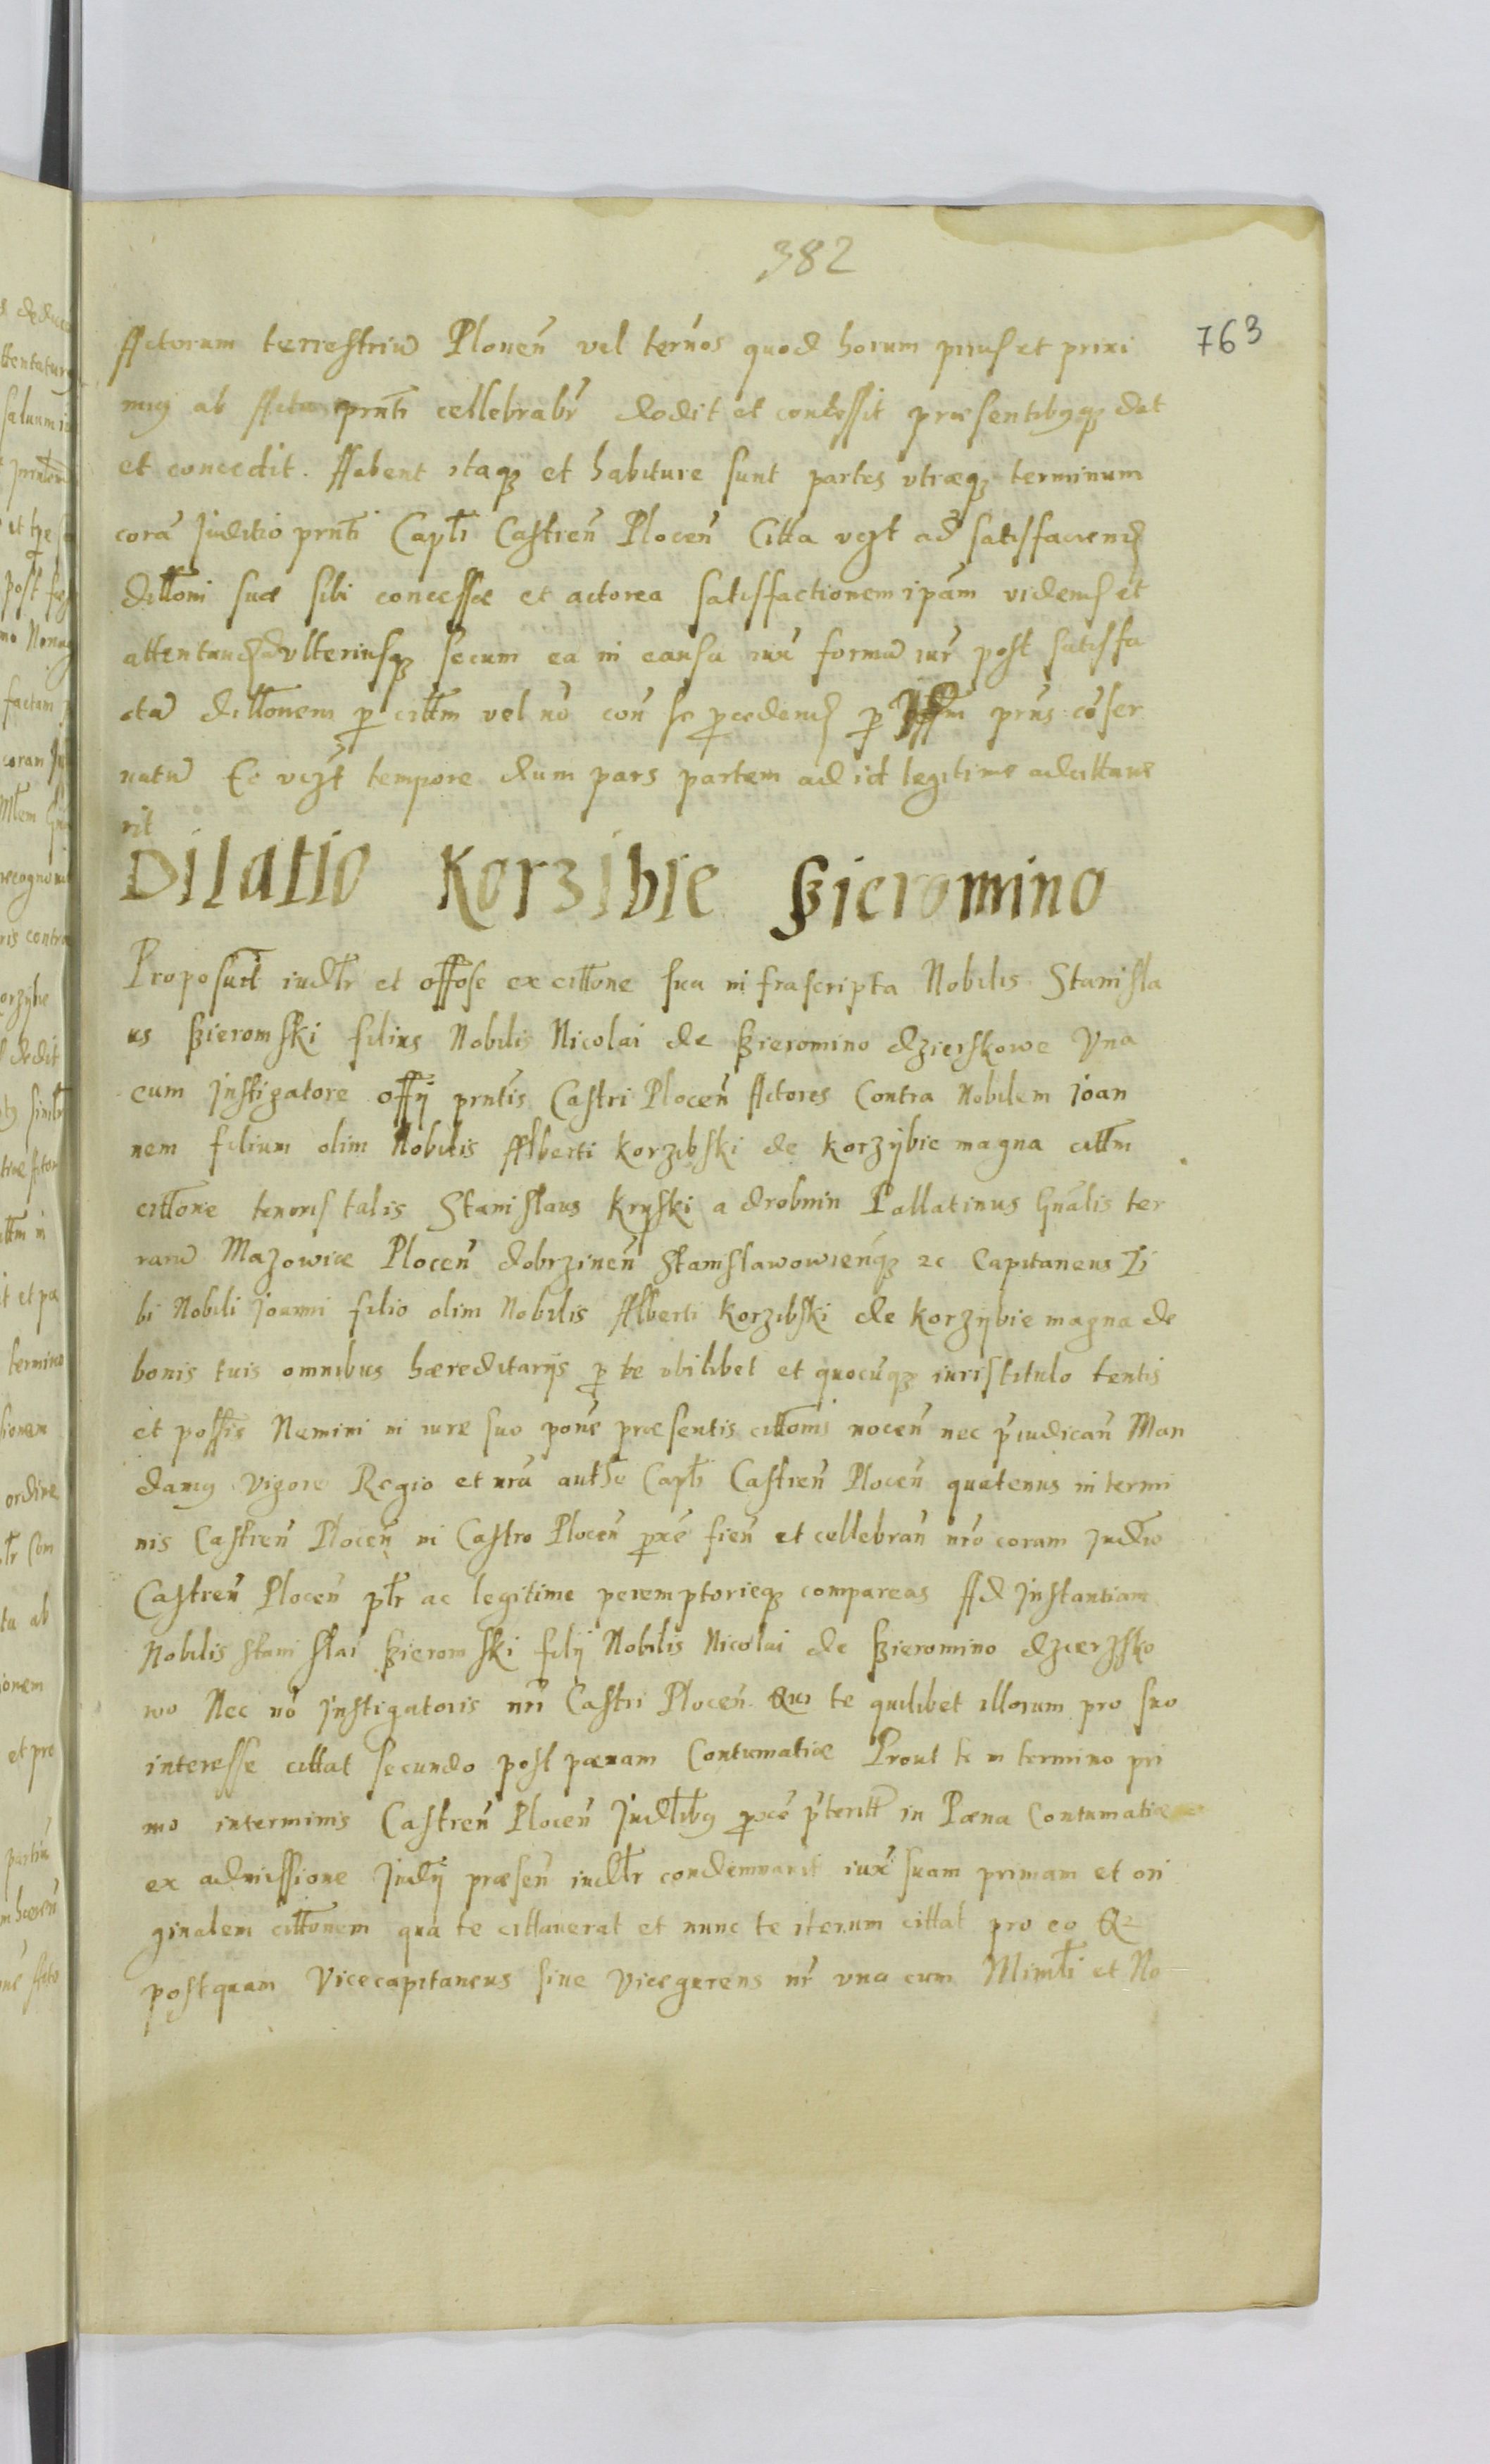 382
763
Actorum terrestriu Plonen̄ vel ter̄nos quod horum prius et proxi
mus ab Actu prn̄ti cellebrabr̄ dedit et concessit præsentibusq dat
et concedit. Habent itaq et habiture sunt partes vtræq terminum
corā Juditio prn̄ti Captl̄i Castren̄ Plocen̄ Citta vczt ad satisfaciend
dittoni suæ sibi concessæ et actorea satisfactionem ipām videnḋ et
attentand vlteriusq secum ea in causa iux̄ formā iur̄ post satisfa
ctā dittonem p citt̄m vel nō con se pcedend p prn̄s coser
natu Eo vczt tempore dum pars partem ad id legitime adcittaue
rit
Dilatio Korzibie Szieromino
Proposuit iudtr̄ et offose ex cittone sua infrascripta Nobilis Stanisla
us Szieromski filius Nobilis Nicolai de Szieromino dzierskowe Vna
cum Instigatore offij prn̄tis Castri Plocen̄ Actores Contra Nobilem Joan
nem filium olim Nobilis Alberti Korzibski de Korzÿbie magna citt̄m
cittone tenoris talis Stanislaus Kryski a drobnin Pallatinus Gn̄alis ter
raru Mazowiæ Plocen̄ dobrzinen̄ Stanislawowienq̄ 2c Capitaneus Ti
bi Nobili Joanni filio olim Nobilis Alberti Korzibski de Korzÿbie magna de
bonis tuis omnibus hæreditarijs p te vbilibet et quocūq iuris titulo tentis
et possis Nemini in iure suo pone præsentis cittonis nocen̄ nec p̄iudican̄ Man
damus Vigore Regio et nrā autħe Captl̄i Castren̄ Plocen̄ quatenus in termi
nis Castren̄ Plocen̄ in Castro Plocen̄ pxe fien̄ et cellebran̄ nr̄o coram Judio
Castren̄ Plocen̄ ptr̄ ac legitime peremptorieq compareas Ad Instantiam
Nobilis Stanislai Szieromski filij Nobilis Nicolai de Szieromino dzierzsko
wo Nec nō Instigatoris nr̄i Castri Plocen̄ Qui te quilibet illorum pro suo
interesse cittat secundo post pænam Contumatiæ Prout te in termino pri
mo in terminis Castren̄ Plocen̄ Judtibus pxe p̄teritt in Pæna Contumatiæ
ex admissione Judij præsen̄ iudtr̄ condemnauit iux̄ suam primam et ori
ginalem cittonem qua te cittauerat et nunc te iterum cittat pro eo Q2
postquam Vicecapitaneus siue Vicegerens nr̄ vna cum Mimt̄i et No